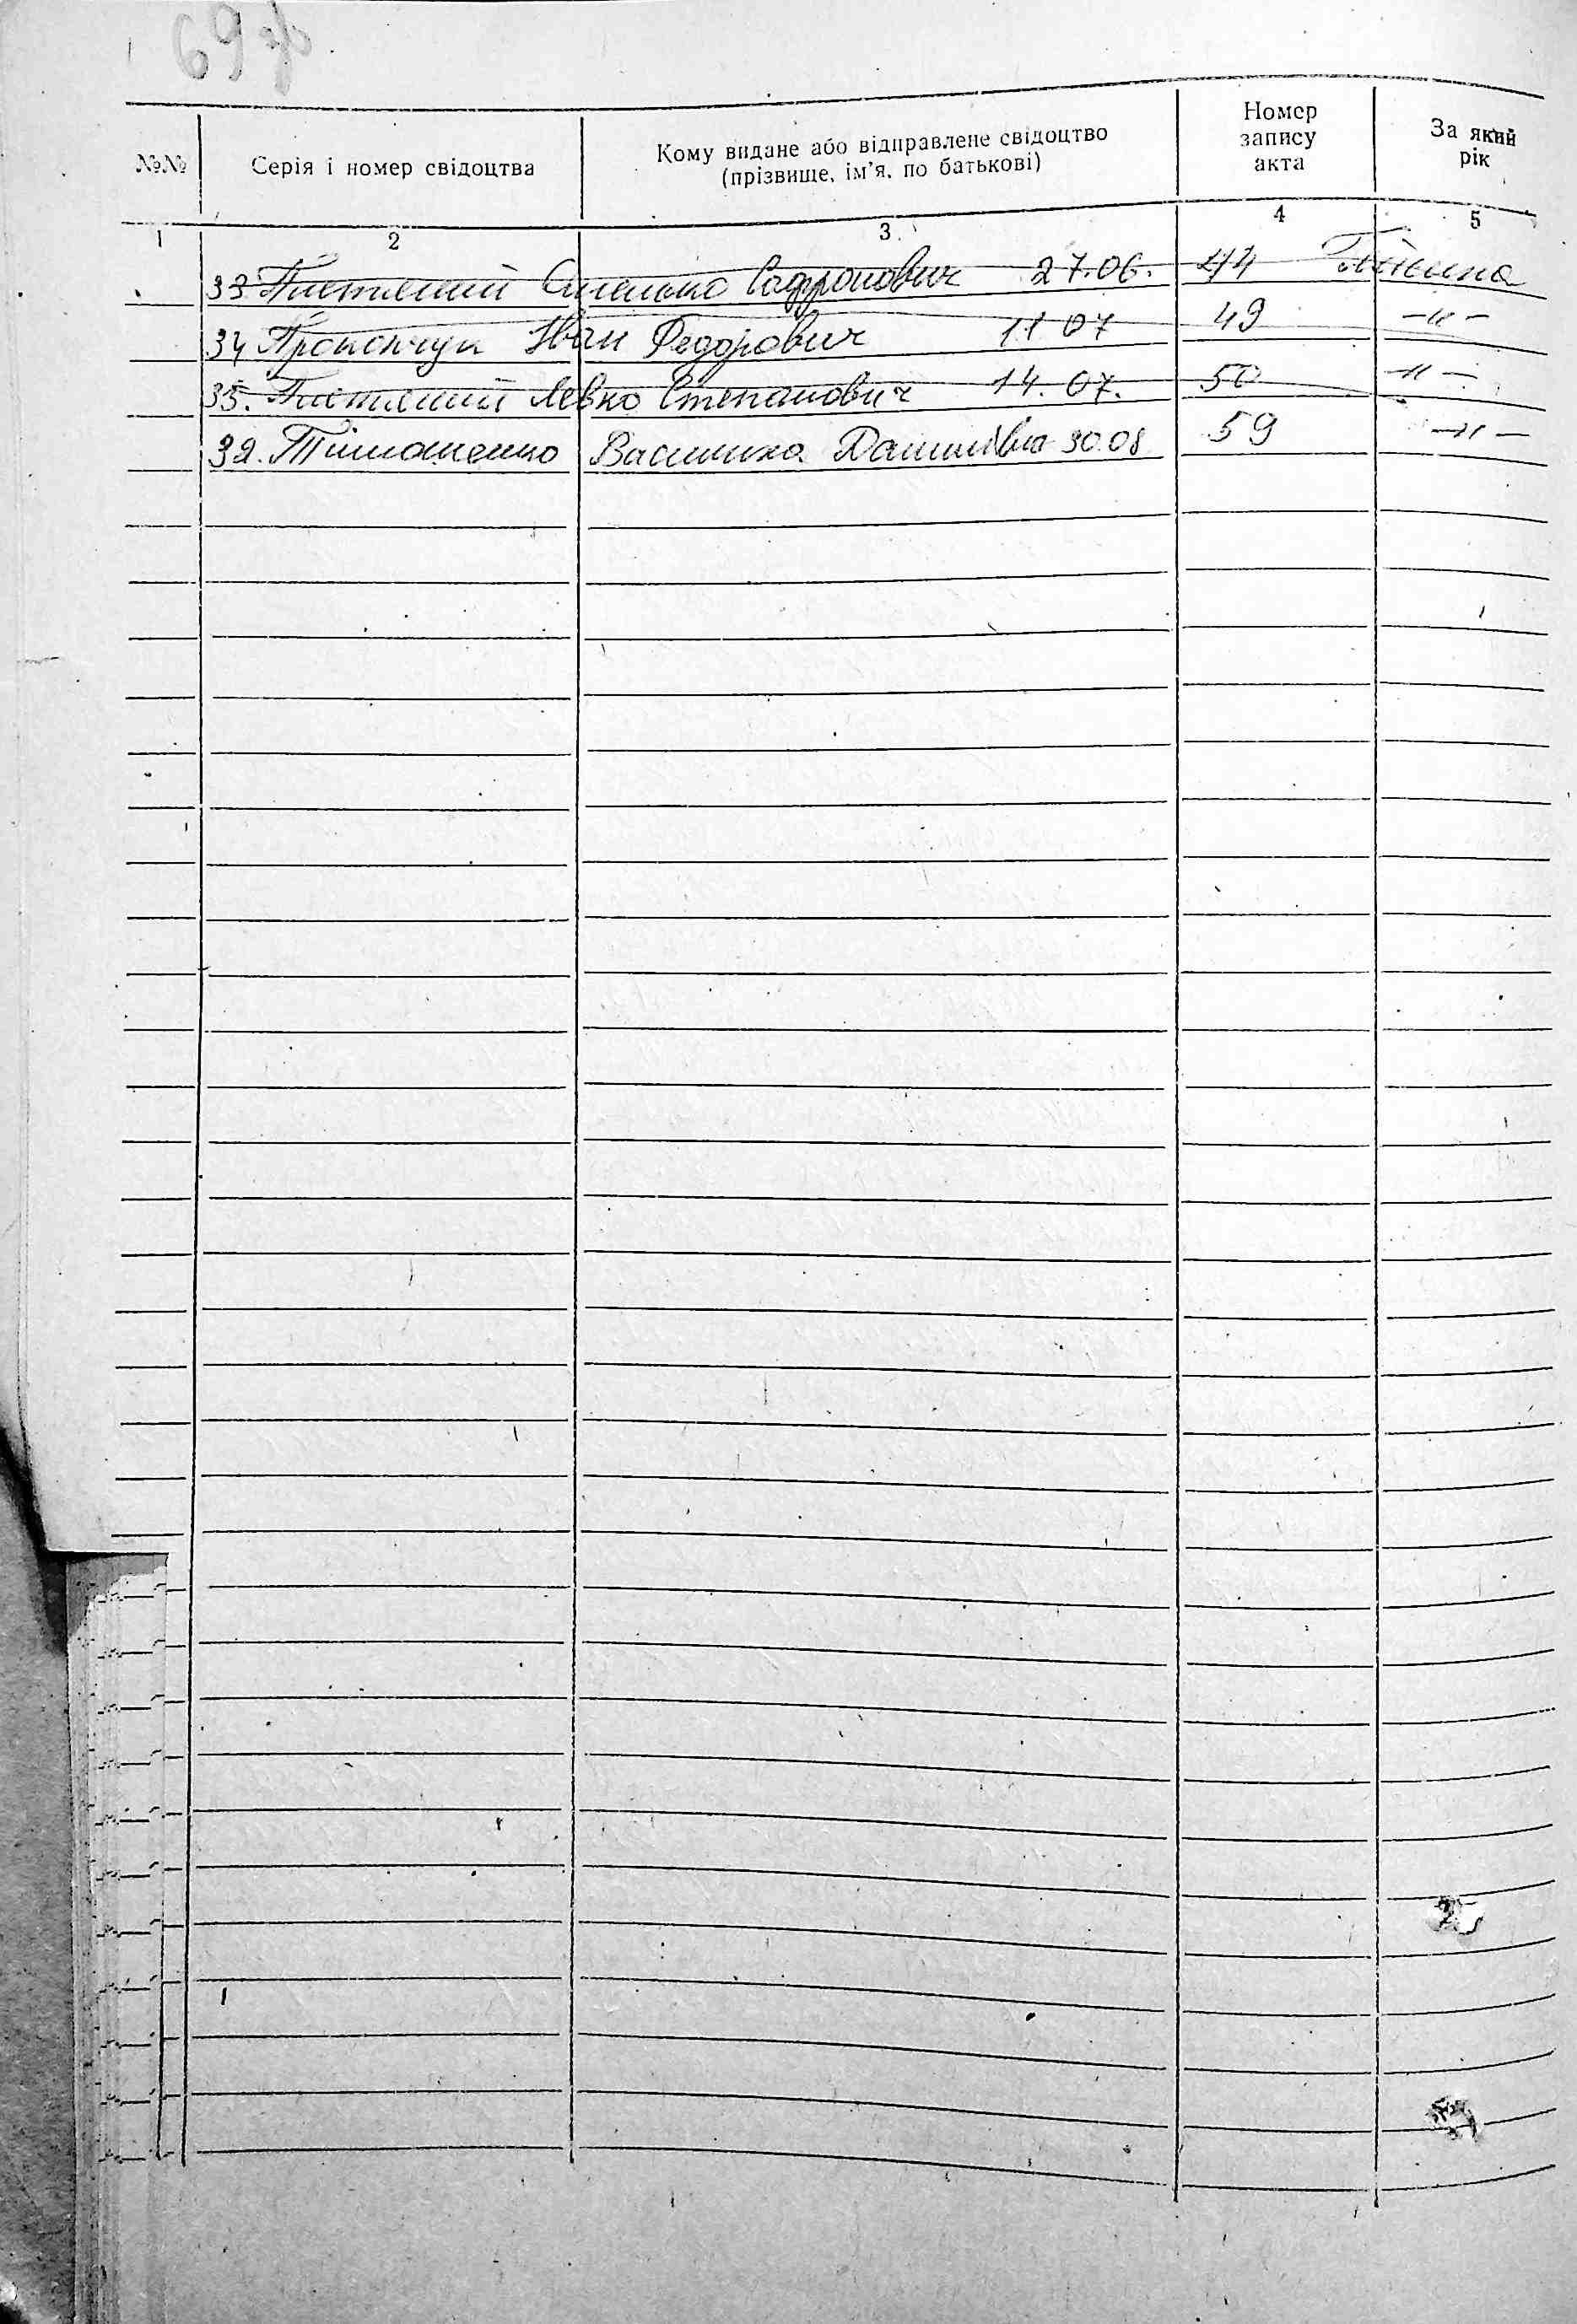 69 зв.
№№ Серія і номер свідоцтва Кому видане або відправлене свідоцтво (прізвище, ім’я, по батькові) Номер запису акта За який рік
1 2 3 4 5
33 Сафронович 27.06. 44
34 Прокопчук Іван Федорович 11 07 49 -"-
35. Левко Степанович 14. 07. 50 -"-
39. Тимошенко Василина Данилівна 30.08 59 -"-